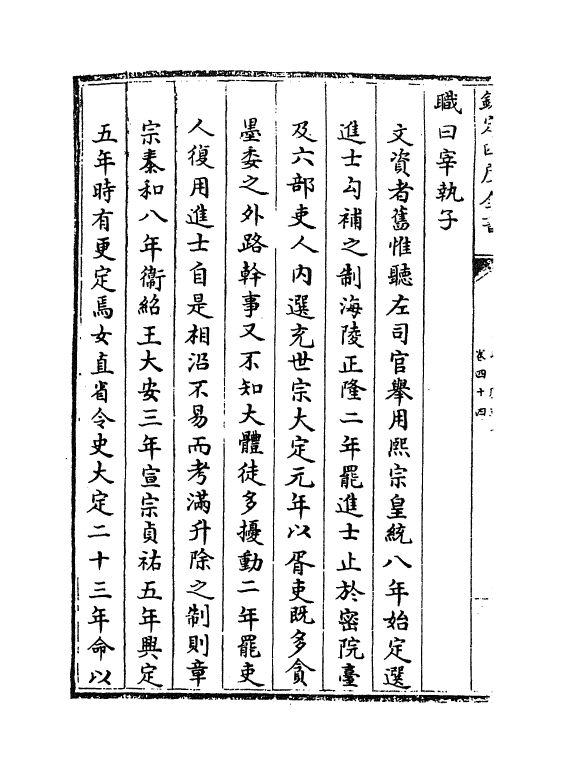 卷四十四
職曰宰執子
文資者舊惟聽左司官舉用熙宗皇統八年始定選
進士勾補之制海陵正隆二年罷進士止於密院臺
及六部吏人內選充世宗大定元年以胥吏既多貪
墨委之外路幹事又不知大體徒多擾動二年罷吏
人復用進士自是相沿不易而考滿升除之制則章
宗泰和八年衞紹王大安三年宣宗貞祐五年興定
五年時有更定焉女直省令史大定二十三年命以